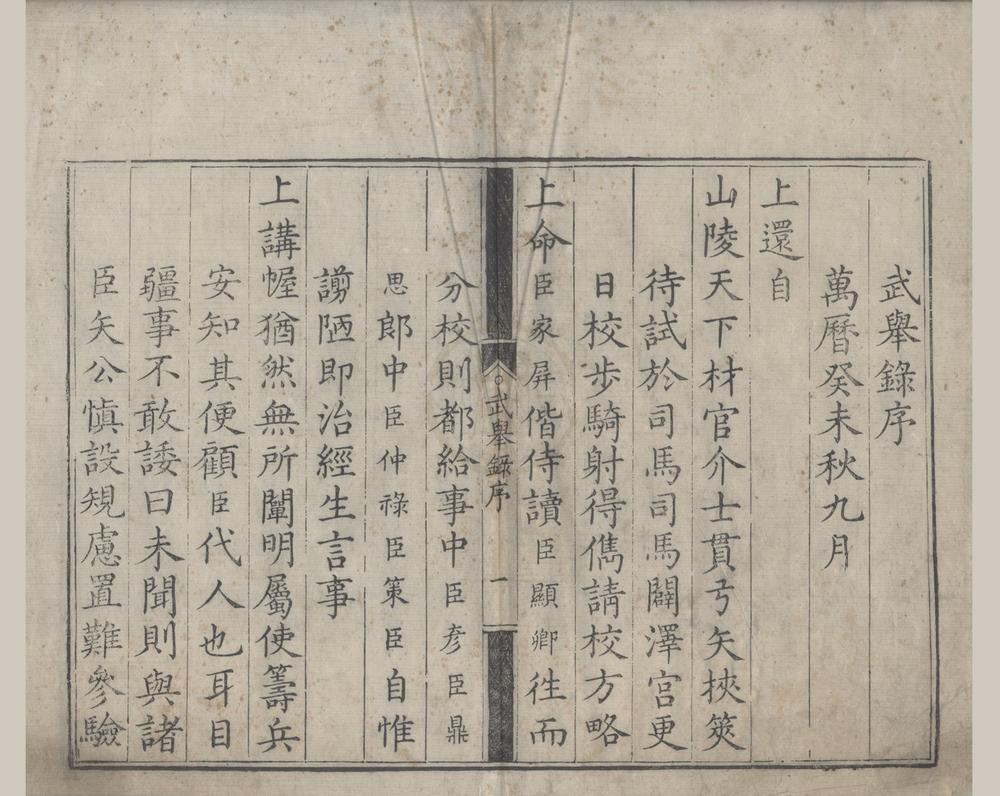 武舉錄序
萬曆癸未秋九月
上還自
山陵天下材官介士貫弓矢挾筴
待試於司馬司馬闢澤宮更
日校步騎射得儁請校方略
上命臣家屏偕侍讀臣顯卿徃而
武舉錄序 一
分校則都給事中臣彥臣鼎
思郎中臣仲祿臣策臣自惟
謭陋即治經生言事
上講幄猶然無所闡明屬使籌兵
安知其便顧臣代人也耳目
疆事不敢諉曰未聞則與諸
臣矢公慎設規慮置難參驗